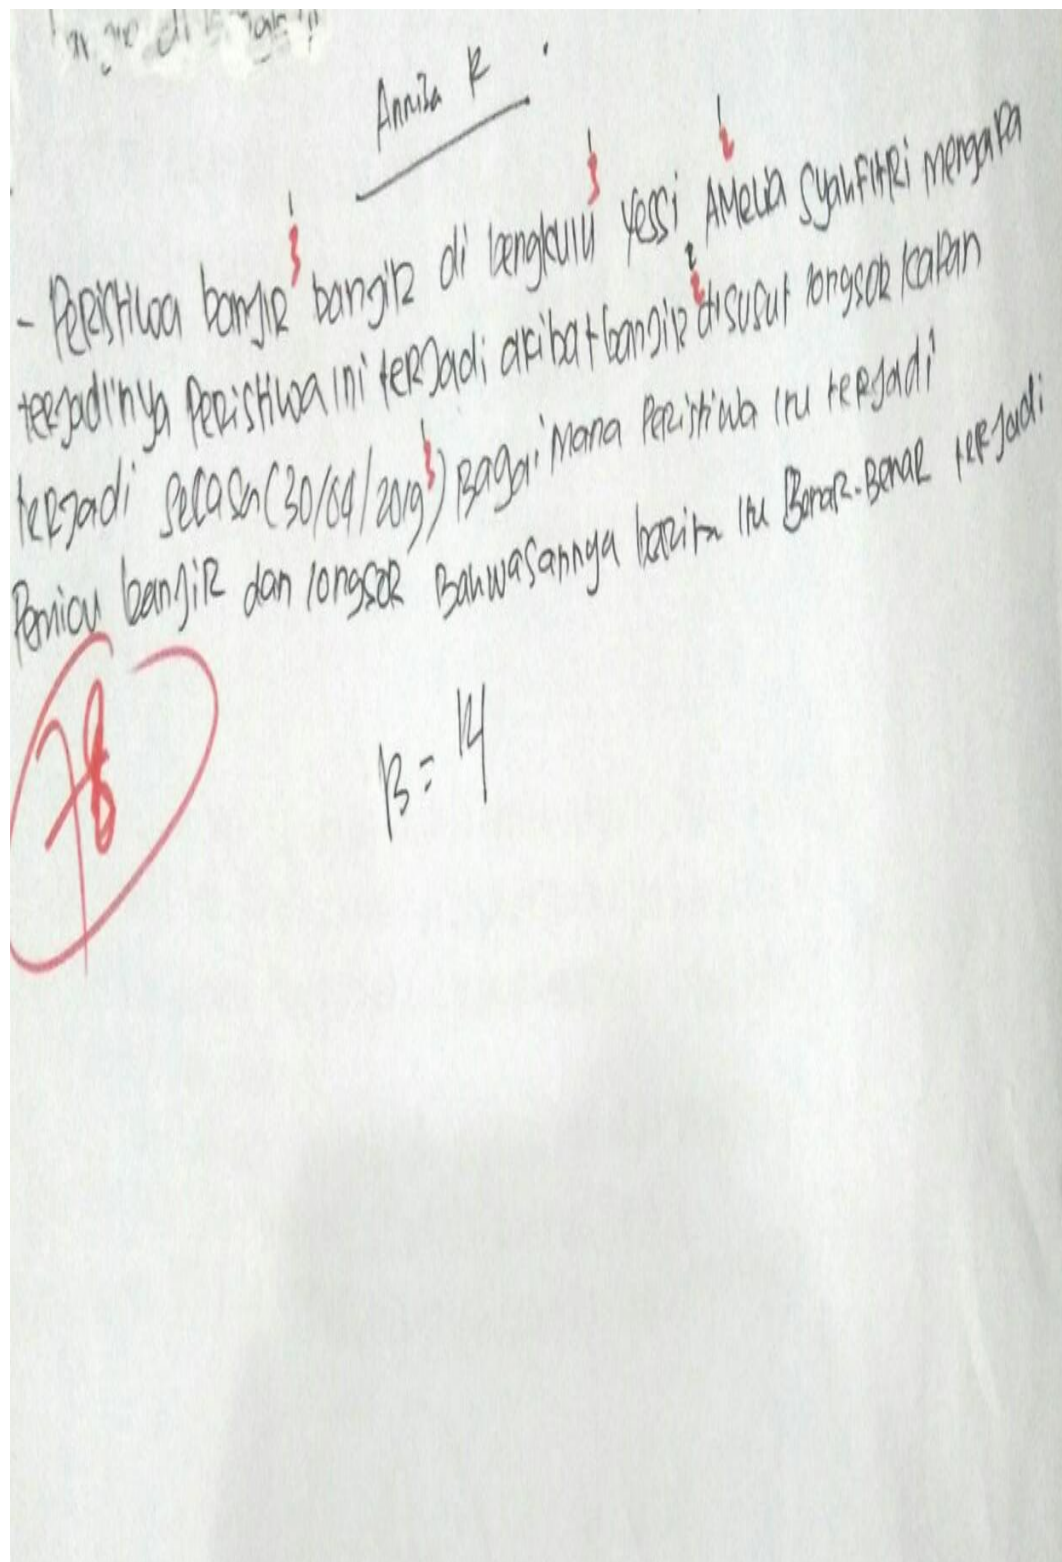 di
Annisa R
1 1 1
3 3 2
- Peristiwa banjir banjir di bengkulu Yessi Amelia Syahfitri mengapa
2
2
terjadinya Peristiwa ini terjadi akibat banjir disusut longsor kapan
1
3
terjadi selasa (30/04/2019) Bagaimana Peristiwa itu terjadi
Pemicu banjir dan longsor Bahwasannya berita itu Benar-Benar terjadi
78
B = 14